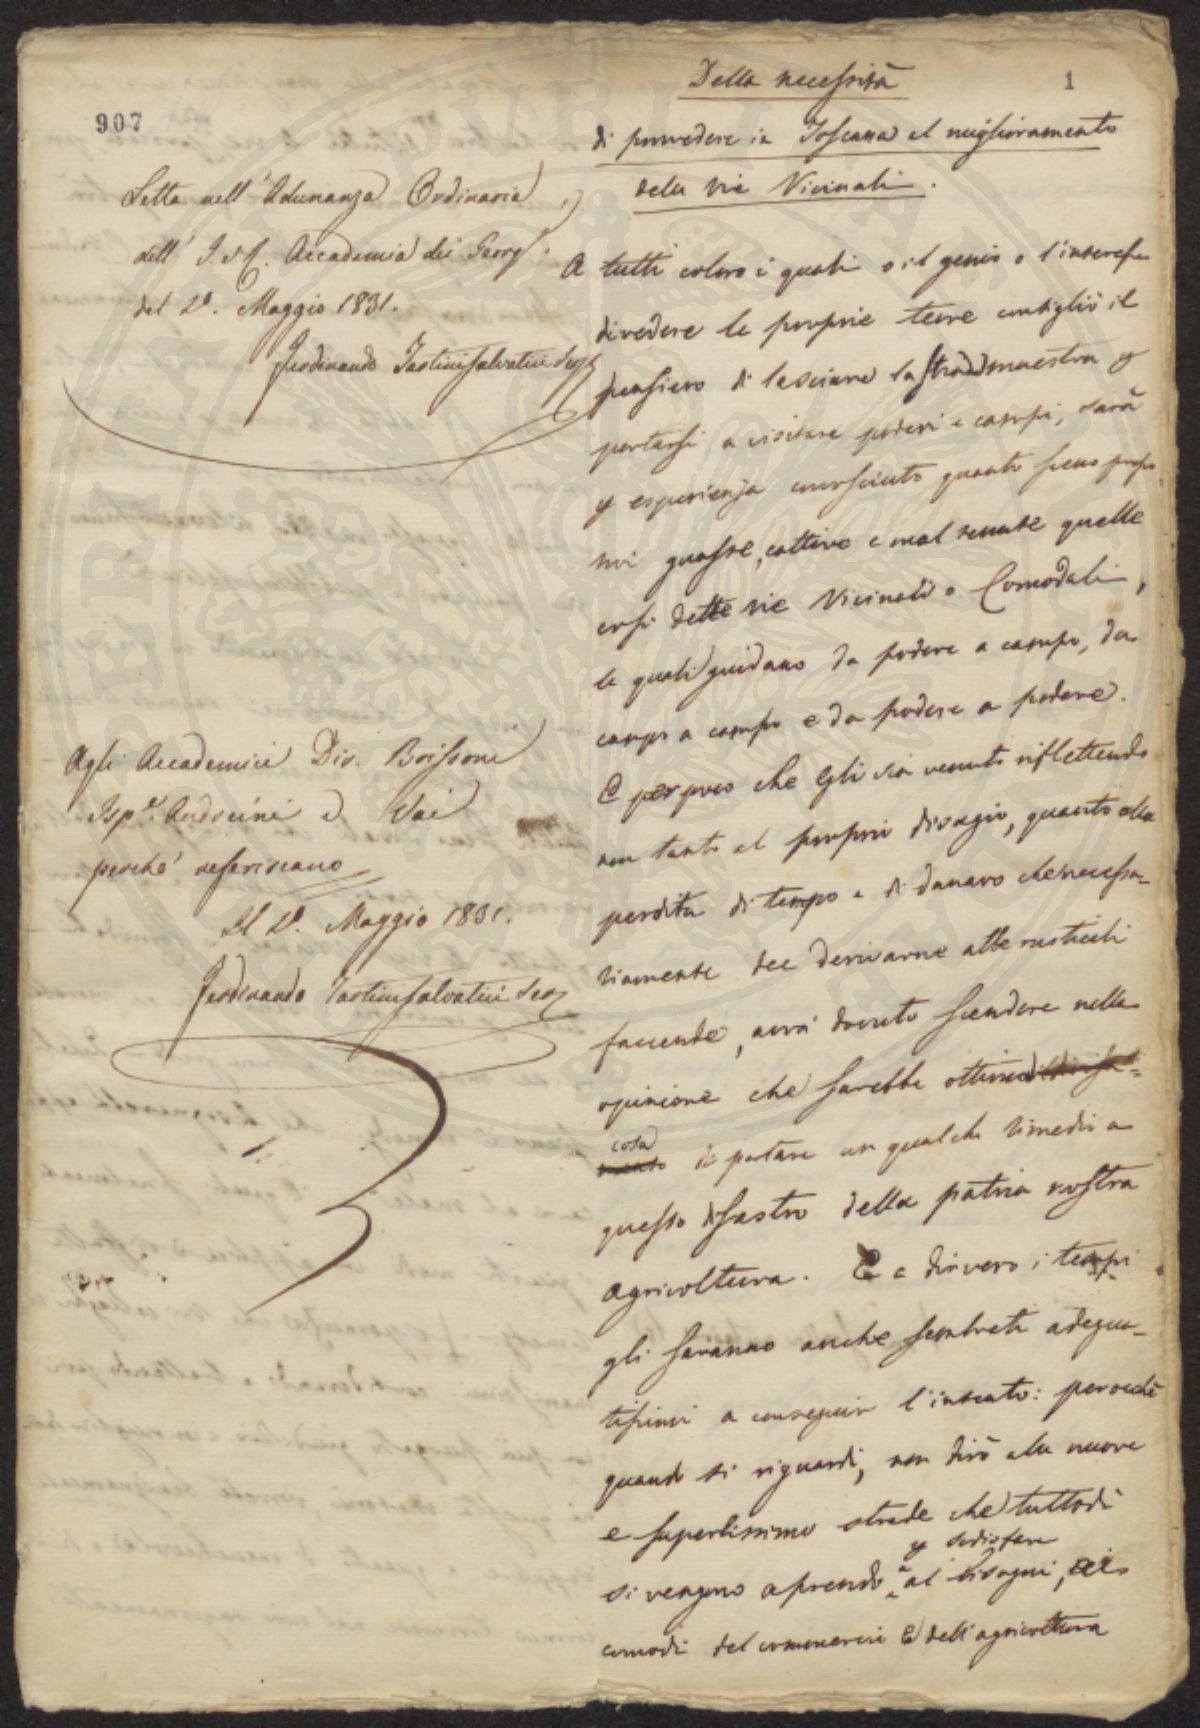 Della necessità
1
907
di provvedere in Toscana al miglioramento
delle vie Vicinali.
Letta nell'Adunanza Ordinaria
dell' I. e R. Accademia dei Georg.
del 1°. Maggio 1831.
Ferdinando Tartini Salvatici Seg.
A tutti coloro i quali o il genio o l'interesse
di vedere le proprie terre consigliò il
pensiero di lasciare la strada maestra p
portarsi a visitare poderi e campi, sarà
p esperienza conosciuto quanto sieno pessi
mi guaste, cattive e mal tenute quelle
così dette vie Vicinali o Comodali,
le quali guidano da podere a campo, da
campo a campo e da podere a podere.
E per poco che egli sia venuto riflettendo
non tanto al proprio disagio, quanto alla
perdita di tempo e di danaro che necessa-
riamente dee derivarne alle rusticali
faccende, avrà dovuto scendere nella
opinione che sarebbe ottima
cosa il portare un qualche rimedio a
questo disastro della patria nostra
agricoltura. E a dir vero i tempi
gli saranno anche sembrati adegua-
tissimi a conseguir l'intento: perocchè
quando si riguardi, non dirò alle nuove
e superbissime strade che tuttodì
p sodisfare
si vengono aprendo ai bisogni, ai
comodi del commercio e dell'agricoltura
Agli Accademici Dir. Boissoni
Isp.e Andreini e Vai
perchè referiscano
Il 1°. Maggio 1831.
Ferdinando Tartini Salvatici Seg.